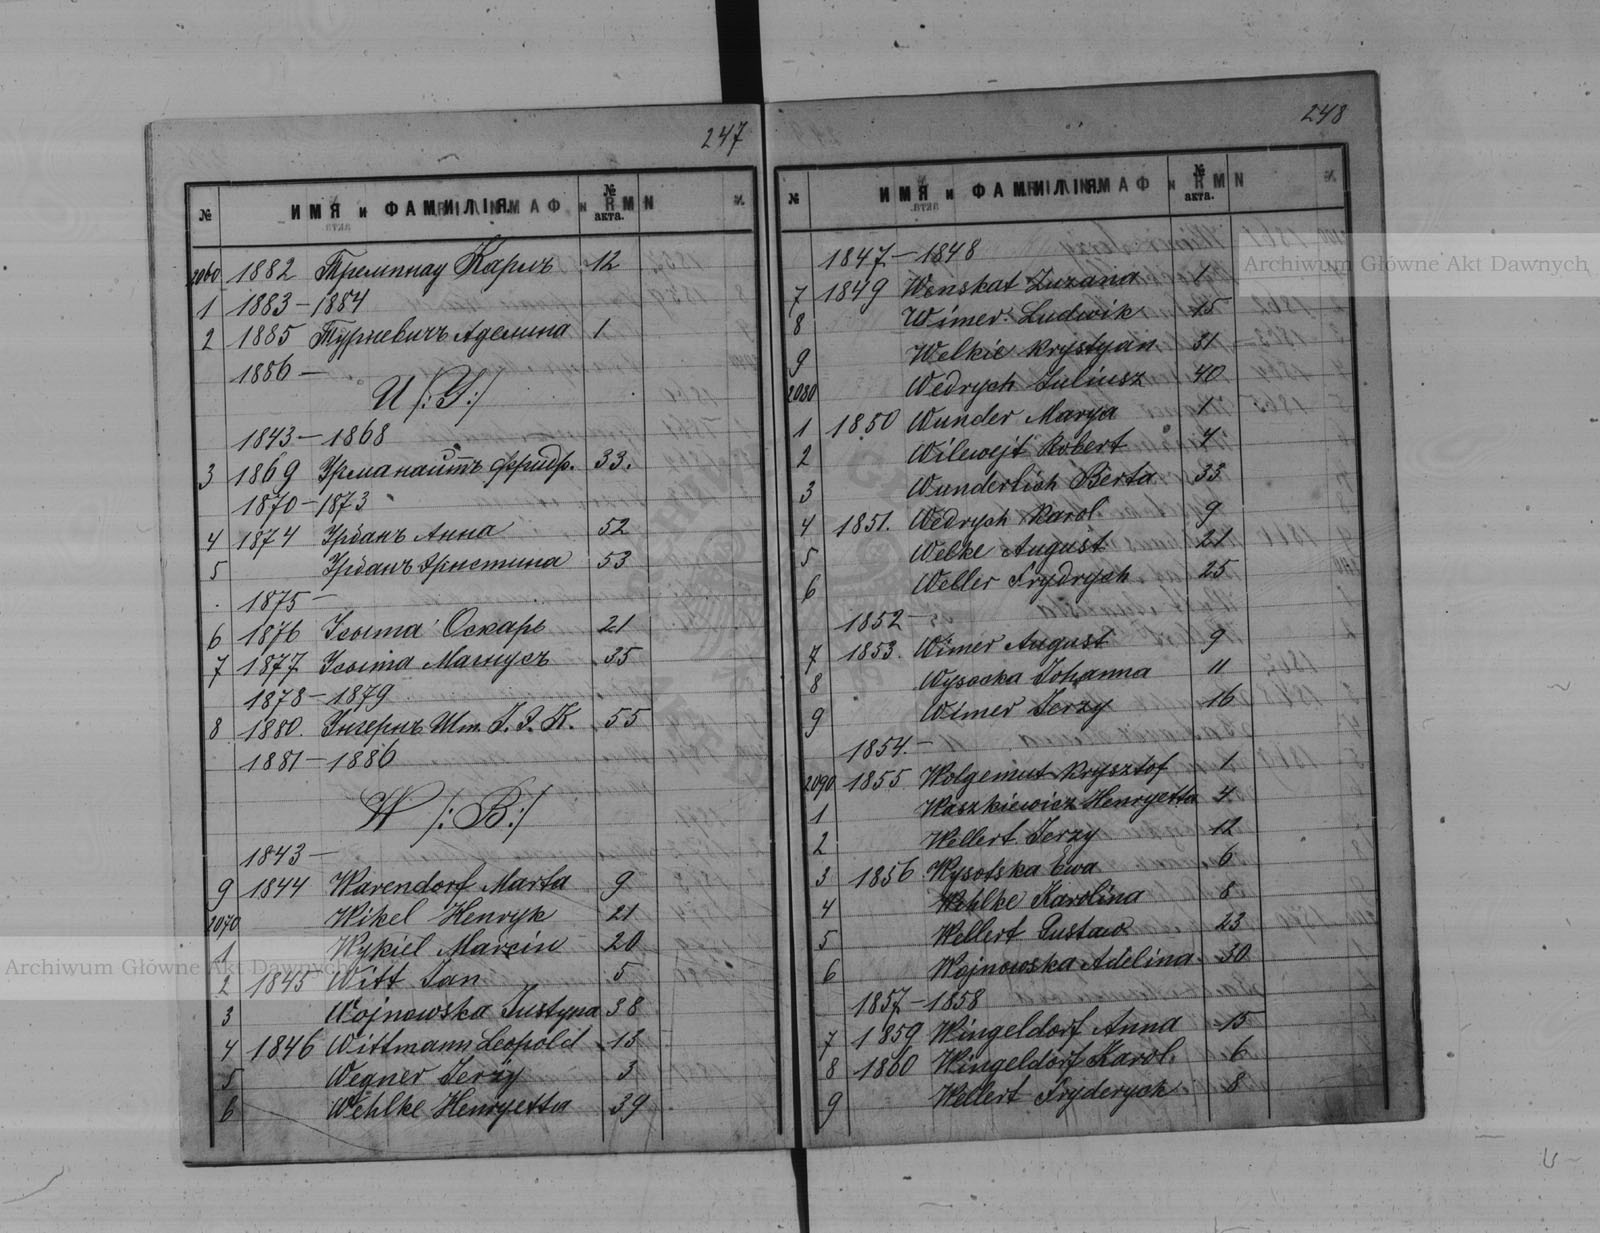 247
№ ИМЯ и ФАМИЛІЯ. № акта.
2060 1882 Тремпнау Карлъ 12
1 1883 – 1884
2 1885 Турневичъ Аделина 1
1886 –
U /:У:/
1843 – 1868
3 1869 Урманайтъ Фридр. 33.
1870 – 1873
4 1874 Урбанъ Анна 52
5 Урбанъ Христина 53
1875 –
6 1876 Оскаръ 21
7 1877 Магнусъ 35
1878 – 1879
8 1880. Унгернъ Шт. 55
1881 – 1886
W /:В:/
1843 –
9 1844 Warendorf Marta 9
2070 Wikel Henryk 21
1 Wykiel Marcin 20
2 1845 Witt Jan 5
3 Wojnowska Justyna 38
4 1846 Wittmann Leopold 13
5 Wegner Jerzy 3
6 Wehlke Henryetta 39
248
№ ИМЯ и ФАМИЛІЯ. № акта.
1847 – 1848
7 1849 Wenskat Zuzana 1
8 Wimer Ludwik 15
9 Welkie Krystyan 31
2080 Wedrych Juliusz 40
1 1850 Wunder Marya 1
2 Wilewejt Robert 4
3 Wunderlich Berta 33
4 1851. Wedrych Karol 9
5 Welke August 21
6 Weller Frydrych 25
1852 –
7 1853. Wimer August 9
8 Wysocka Johanna 11
9 Wimer Jerzy 16
1854. –
2090 1855 Wolgemut Krysztof 1
1 Waszkiewicz Henryetta 4
2 Wellert Jerzy 12
3 1856 Wysotska Ewa 6
4 Wehlke Karolina 8
5 Wellert Gustaw 23
6 Wojnowska Adelina 30
1857 – 1858
7 1859 Wingeldorf Anna 15
8 1860 Wingeldorf Karol. 6
9 Wellert Fryderyk 8
Archiwum Główne Akt Dawnych
Archiwum Główne Akt Dawnych